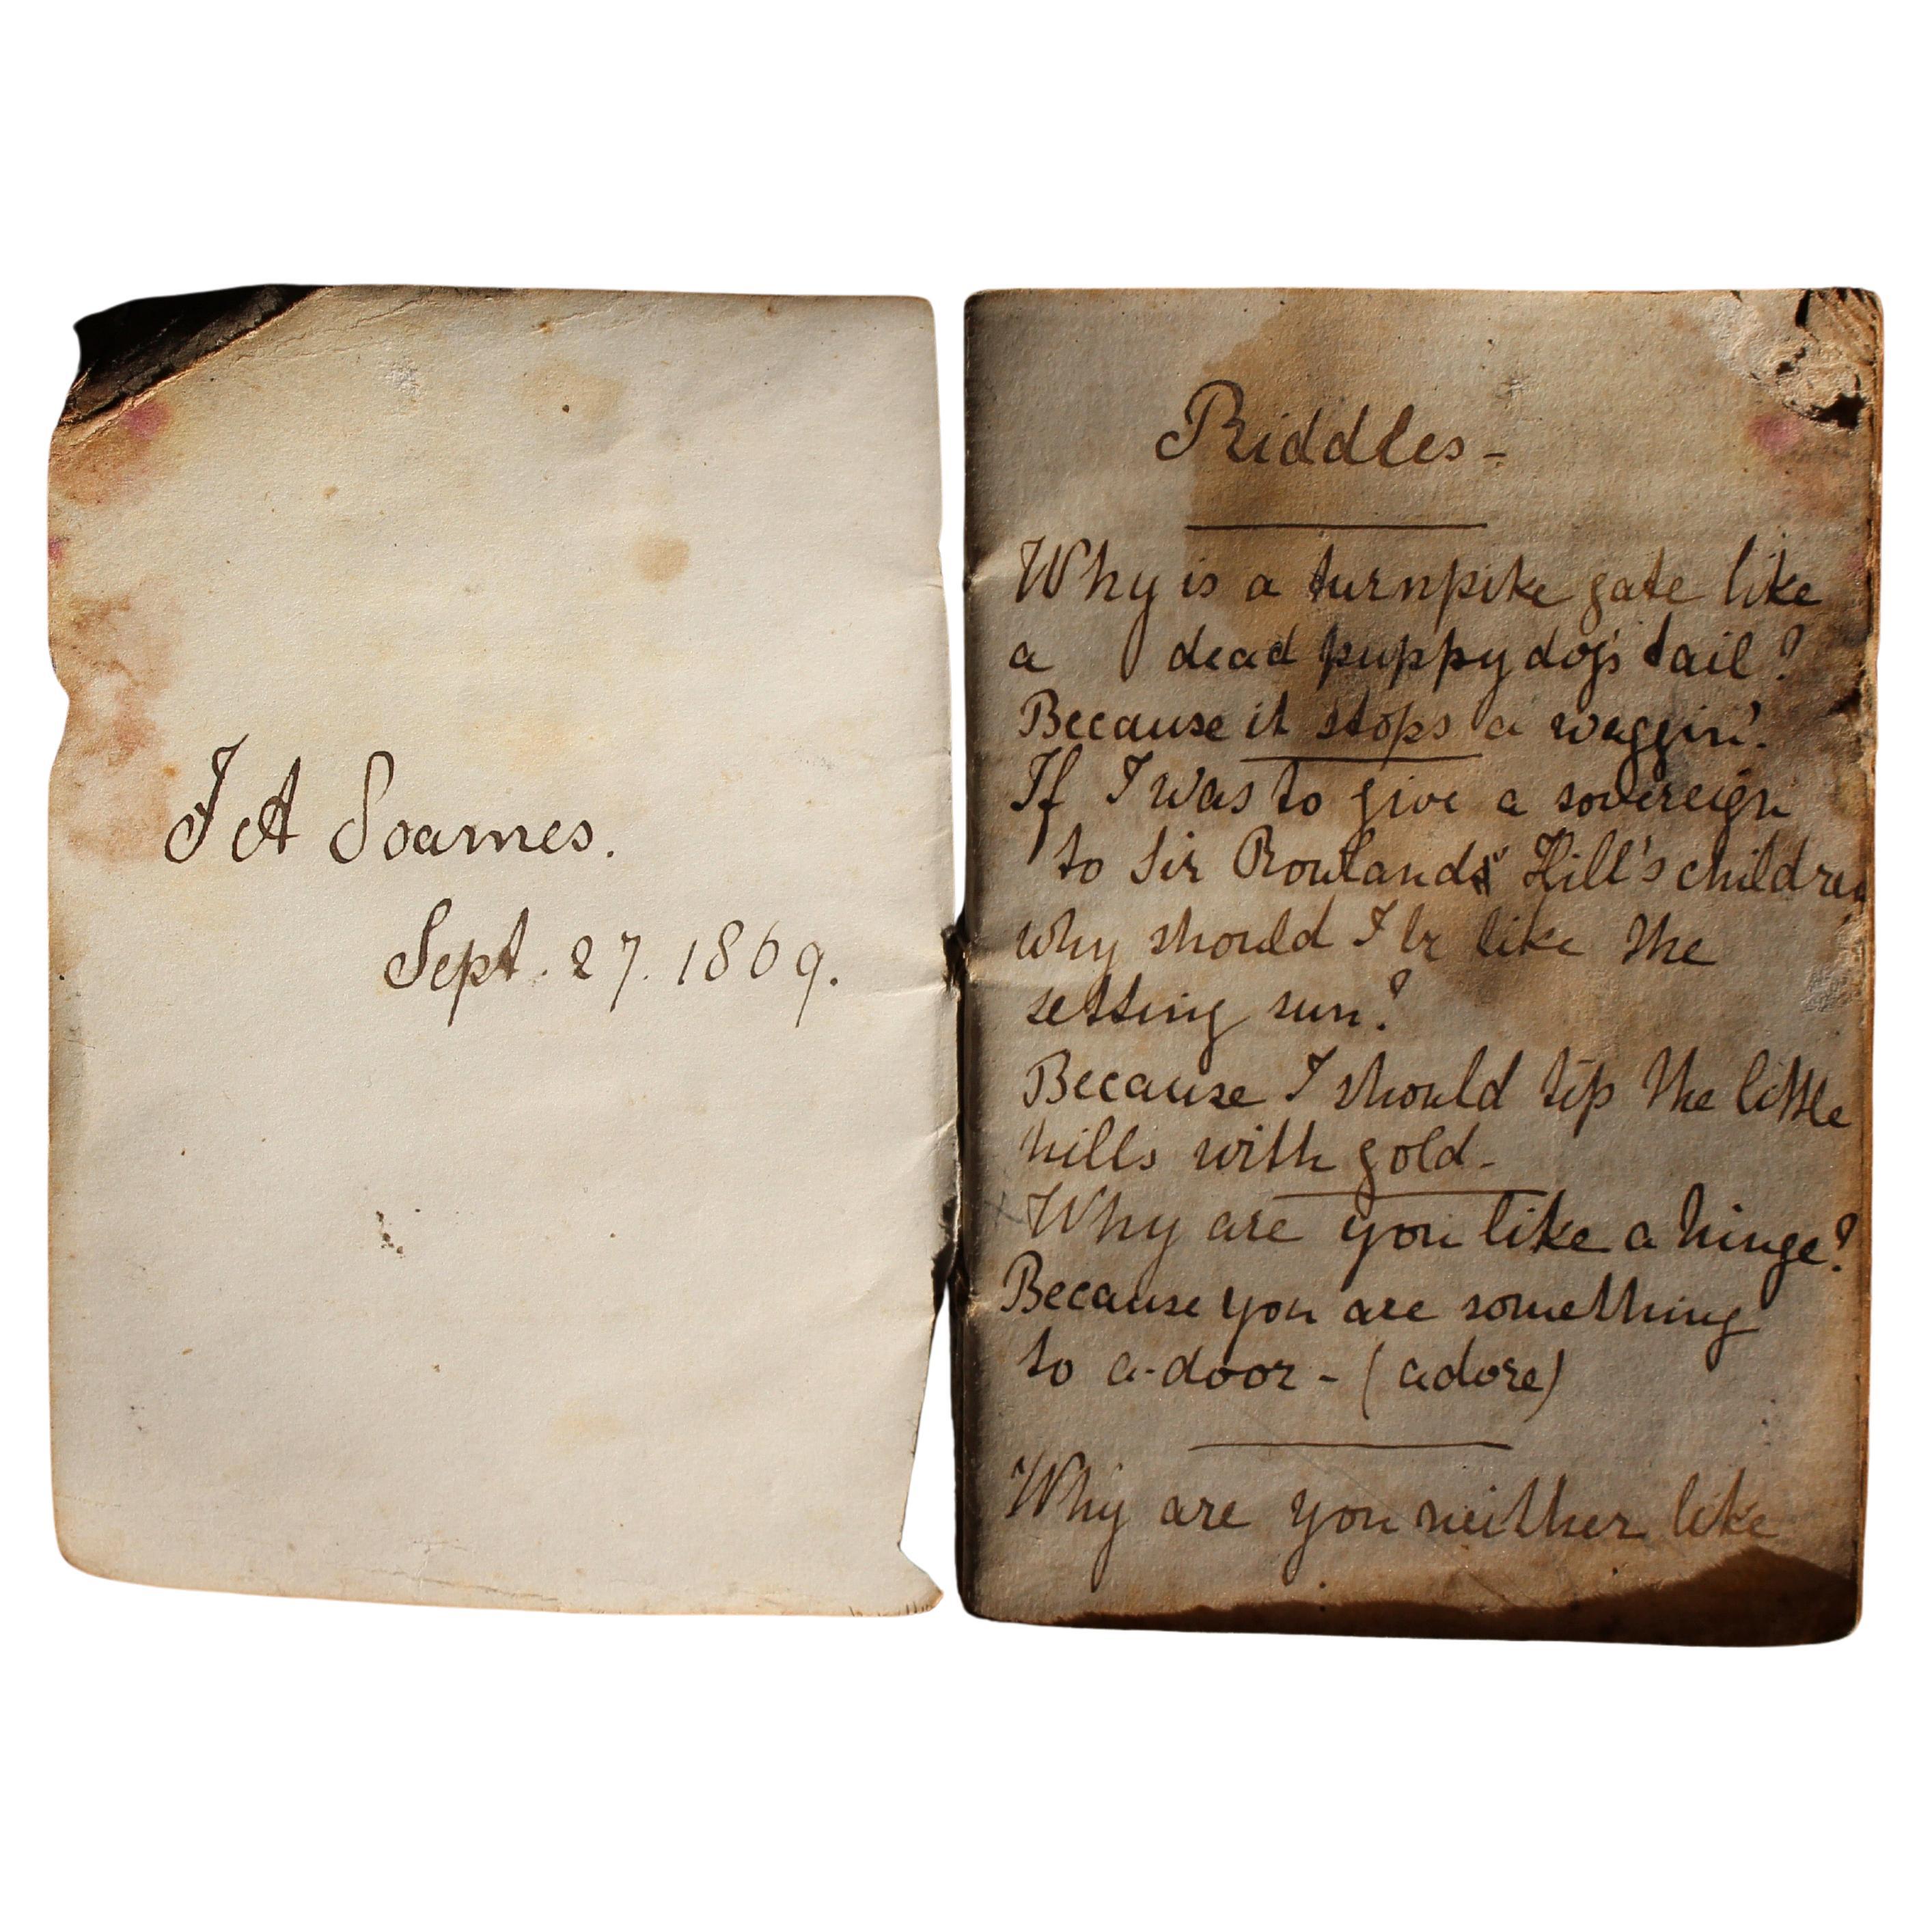 J A Soames.
Sept. 27. 1869.
Riddles -
Why is a turnpike gate like
a dead puppy dog's tail?
Because it stops a waggin'.
If I was to give a sovereign
to Sir Rowland Hill's children
why should I be like the
setting sun?
Because I should tip the little
hills with gold -
Why are you like a hinge?
Because you are something
to a-door - (adore)
Why are you neither like